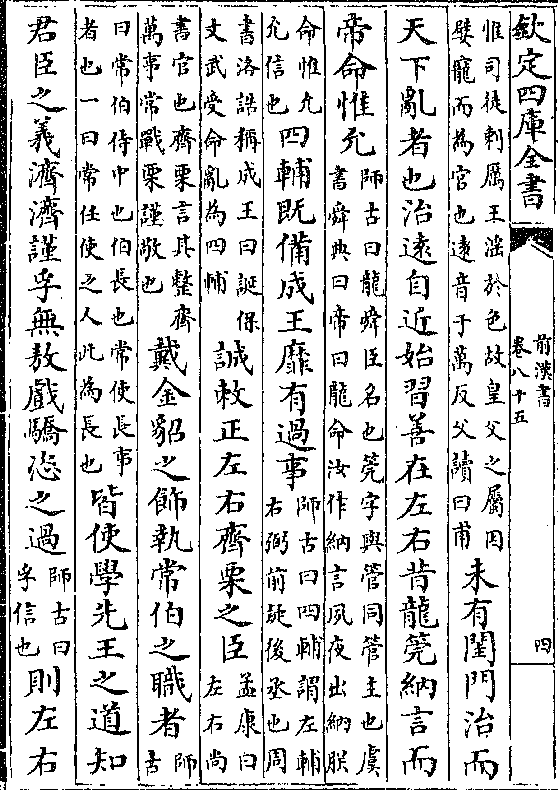 欽定四庫全書
前漢書
卷八十五
四
惟司徒刺厲王淫於色故皇父之屬因
嬖寵而為官也遠音于萬反父讀曰甫
未有閨門治而
天下亂者也治遠自近始習善在左右昔龍筦納言而
帝命惟允
師古曰龍舜臣名也筦字與管同管主也虞
書舜典曰帝曰龍命汝作納言夙夜出納朕
命惟允
允信也
四輔既備成王靡有過事
師古曰四輔謂左輔
右弼前疑後丞也周
書洛誥稱成王曰誕保
文武受命亂為四輔
誠敕正左右齊栗之臣
孟康曰
左右尚
書官也齊栗言其整齊
萬事常戰栗謹敬也
戴金貂之飾執常伯之職者
師
古
曰常伯侍中也伯長也常使長事
者也一曰常任使之人此為長也
皆使學先王之道知
君臣之義濟濟謹孚無敖戲驕恣之過
師古曰
孚信也
則左右